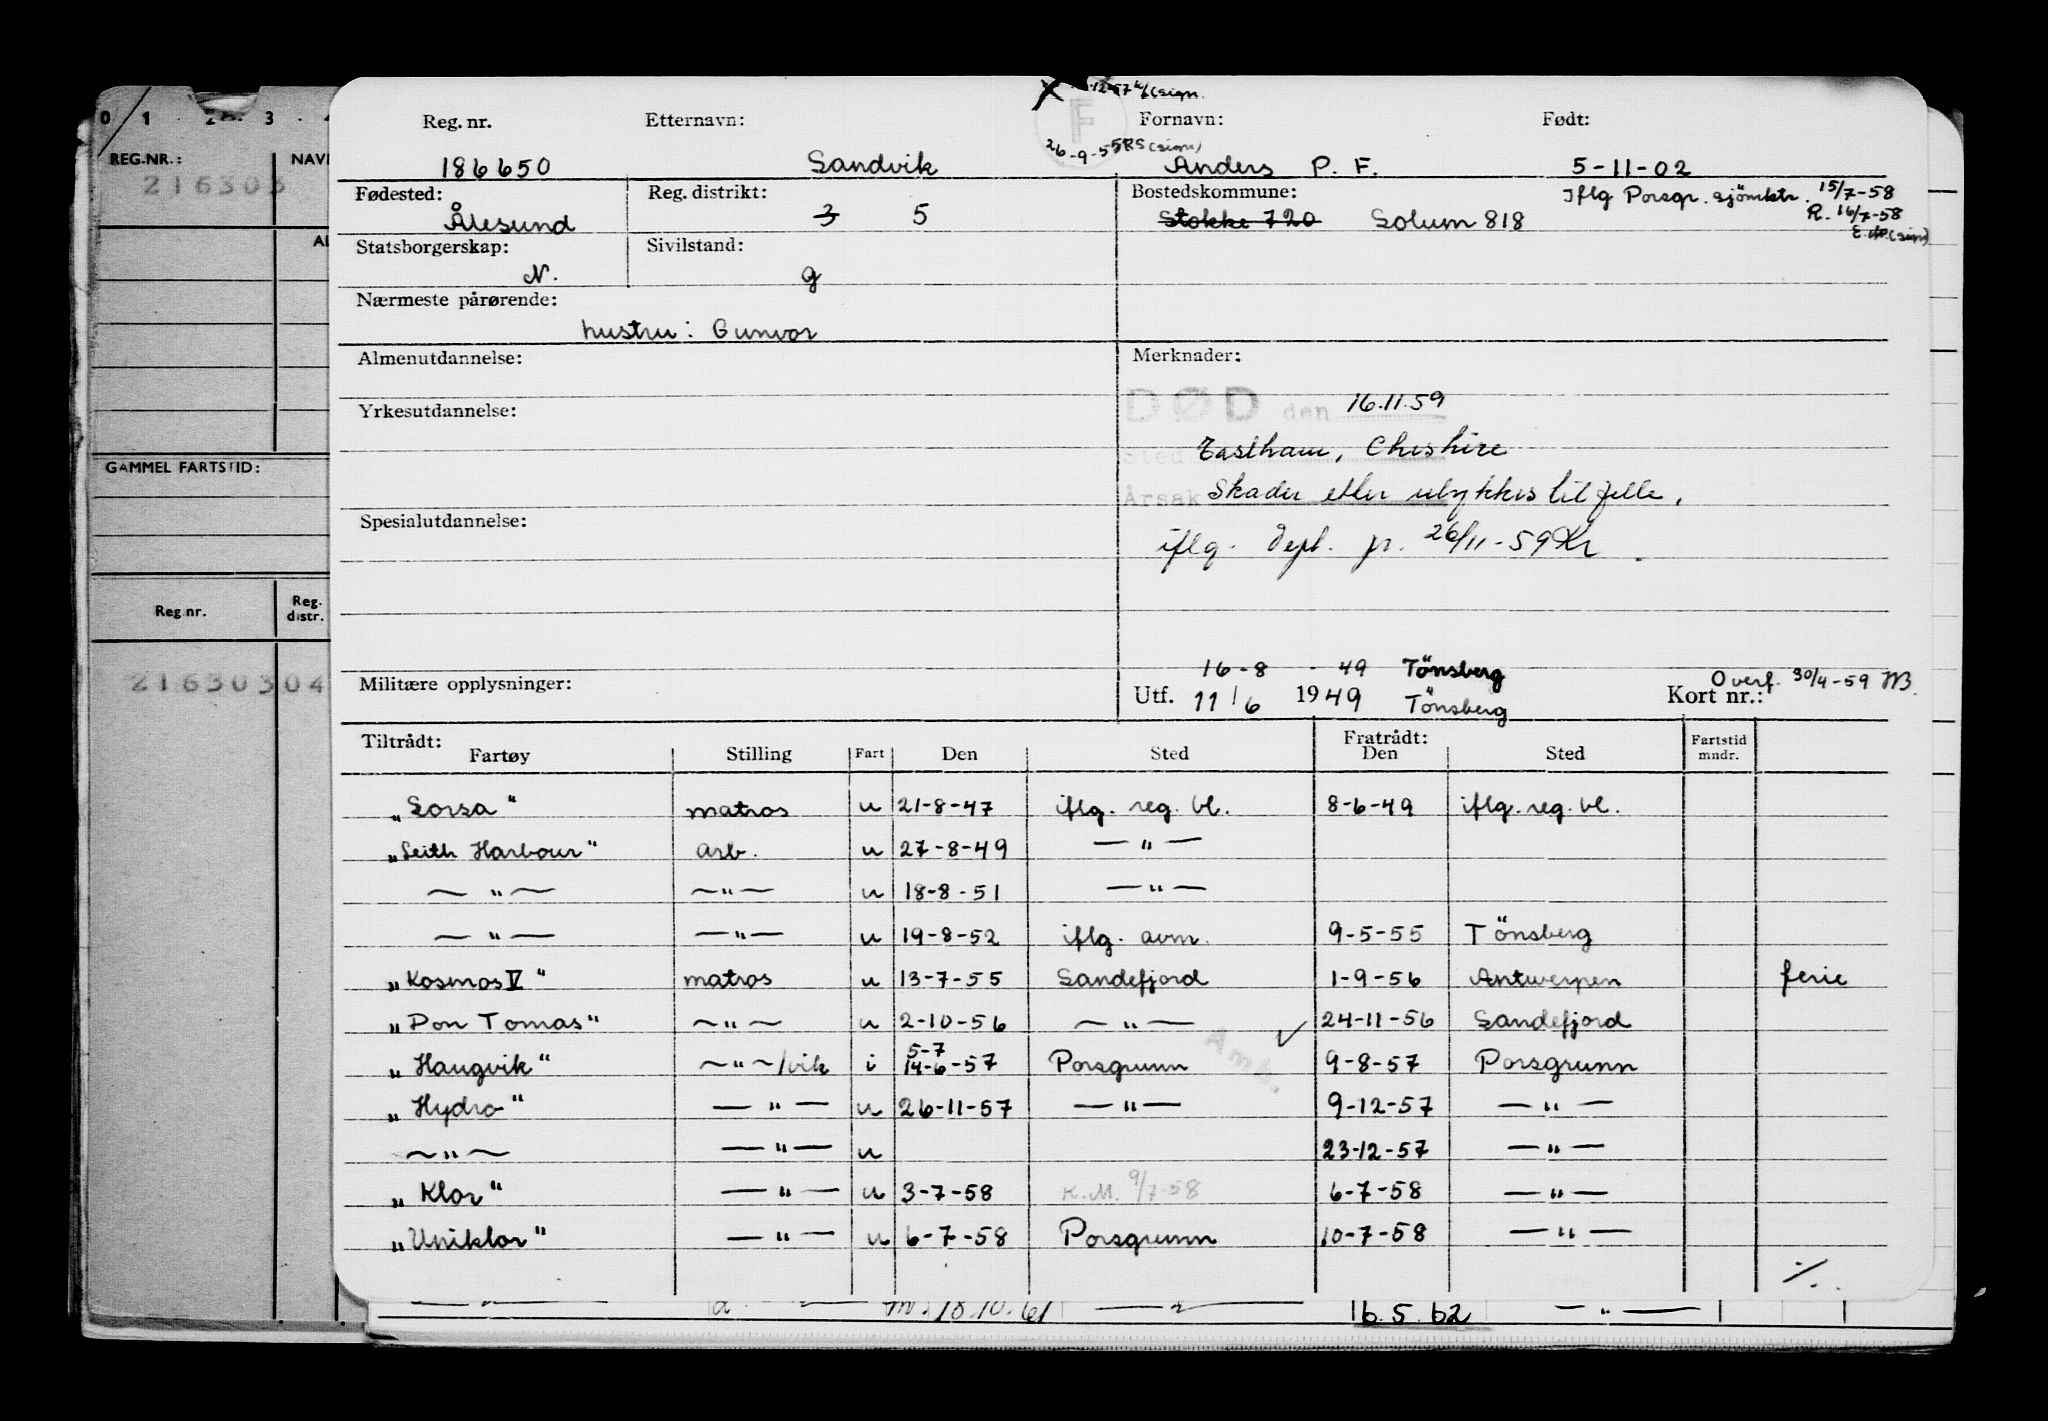 X 12-57 (sign.
F
0 1 2 3
Reg. nr. Etternavn: Fornavn: Født:
26-9-55 RS (sign)
186650 Sandvik Anders P. F. 5-11-02
REG.NR.: NAV
216303
Fødested: Reg. distrikt: Bostedskommune: Iflg Porsgr. sjömktr. 15/7-58
Ålesund 3 5 Stokke 720 Solum 818 R. 16/7-58
(sign)
Statsborgerskap: Sivilstand:
N. g
Nærmeste pårørende:
hustru: Gunvor
Almenutdannelse: Merknader:
DØD den 16.11.59
Yrkesutdannelse:
Sted Eastham, Cheshire
GAMMEL FARTSTID:
Årsak Skader etter ulykkestilfelle,
Spesialutdannelse:
iflg. Dept. pr. 26/11-59 Kr.
Reg nr. Reg. distr.
21630304
16-8 - 49 Tönsberg
Militære opplysninger: Utf. 11/6 1949 Tönsberg Kort nr.: Overf. 30/4-59
Tiltrådt: Fratrådt:
Fartøy Stilling Fart Den Sted Den Sted Fartstid mndr.
„Sorsa" matros u 21-8-47 iflg. reg. bl. 8-6-49 iflg. reg. bl.
„Leith Harbour" arb. u 27-8-49 — " —
— " — — " — u 18-8-51 — " —
— " — — " — u 19-8-52 iflg. avm. 9-5-55 Tönsberg
„Kosmos V" matros u 13-7-55 Sandefjord 1-9-56 Antwerpen ferie
„Don Tomas" — " — u 2-10-56 — " — ✓ 24-11-56 Sandefjord
5-7
„Haugvik" — " —/vik i 14-6-57 Porsgrunn Amb. 9-8-57 Porsgrunn
„Hydro" — " — u 26-11-57 — " — 9-12-57 — " —
— " — — " — u 23-12-57 — " —
„Klor" — " — u 3-7-58 K.M. 9/7-58 6-7-58 — " —
„Uniklor" — " — u 6-7-58 Porsgrunn 10-7-58 — " —
·/.
— " — — " — 18.10.61 — " — 16.5.62 — " —